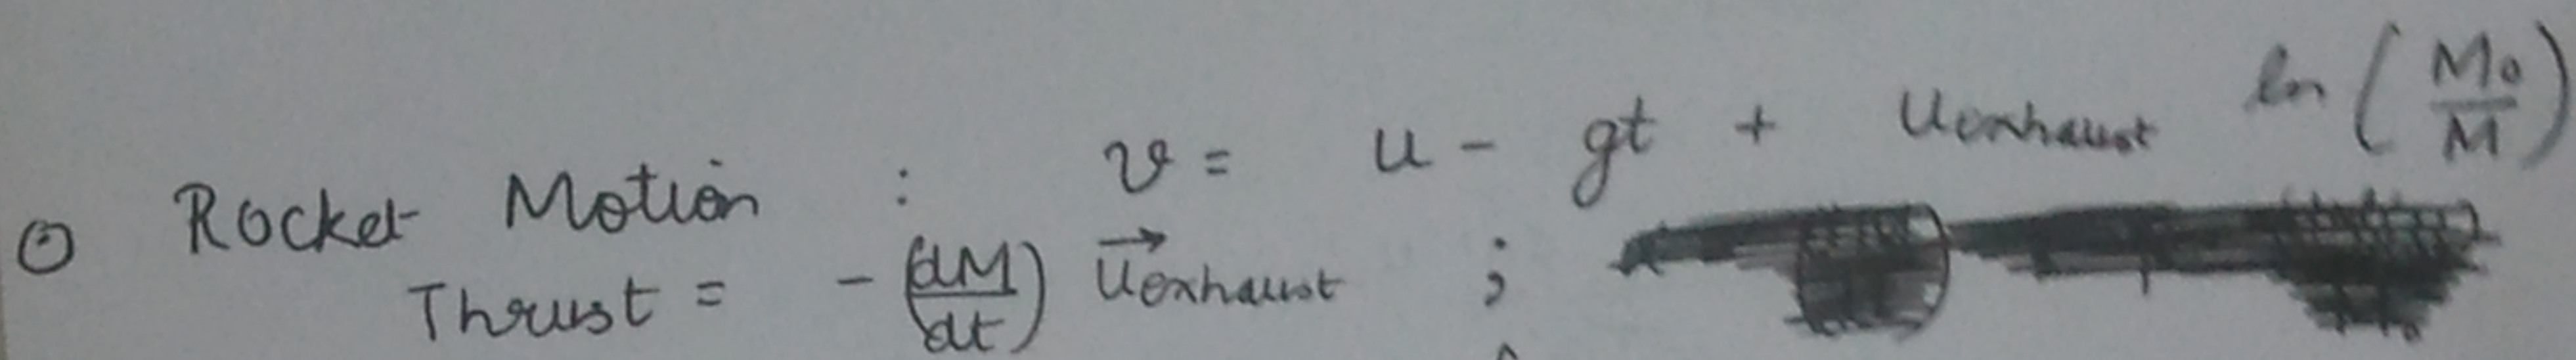 ⊙ Rocket Motion : v = u - gt + u_exhaust ln (M₀/M)
Thrust = - (dM/dt) u⃗_exhaust ;